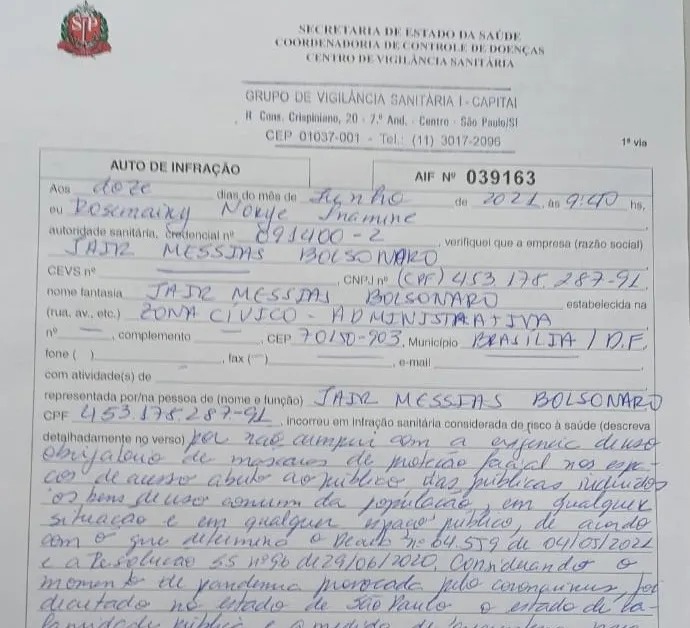 SP
SECRETARIA DE ESTADO DA SAÚDE
COORDENADORIA DE CONTROLE DE DOENÇAS
CENTRO DE VIGILÂNCIA SANITÁRIA
GRUPO DE VIGILÂNCIA SANITÁRIA I - CAPITAL
R Cons. Crispiniano, 20 - 7.º And. - Centro - São Paulo/S
CEP 01037-001 - Tel.: (11) 3017-2096
1ª via
AUTO DE INFRAÇÃO AIF Nº 039163
Aos doze dias do mês de Junho de 2021, às 9:40 hs,
eu Rosemairy Inamine
autoridade sanitária, Credencial nº 891400-2, verifiquei que a empresa (razão social)
JAIR MESSIAS BOLSONARO
CEVS nº , CNPJ nº (CPF) 453.178.287-91
nome fantasia JAIR MESSIAS BOLSONARO estabelecida na
(rua, av., etc.) ZONA CÍVICO - ADMINISTRATIVA
nº , complemento , CEP 70150-903, Município BRASÍLIA / D.F.
fone ( ) , fax ( ) , e-mail
com atividade(s) de
representada por/na pessoa de (nome e função) JAIR MESSIAS BOLSONARO
CPF 453.178.287-91, incorreu em infração sanitária considerada de risco à saúde (descreva
detalhadamente no verso) por não cumprir com a exigência de uso
obrigatório de máscaras de proteção facial nos espa-
ços de acesso aberto ao público das públicas incluídos
os bens de uso comum da população, em qualquer
situação e em qualquer espaço público, de acordo
com o que determina o Decreto nº 64.959 de 04/05/2021
e a Resolução SS nº 96 de 29/06/2020. Considerando o
momento de pandemia provocada pelo coronavírus, foi
decretado no estado de São Paulo o estado de ca-
lamidade pública e a medida de